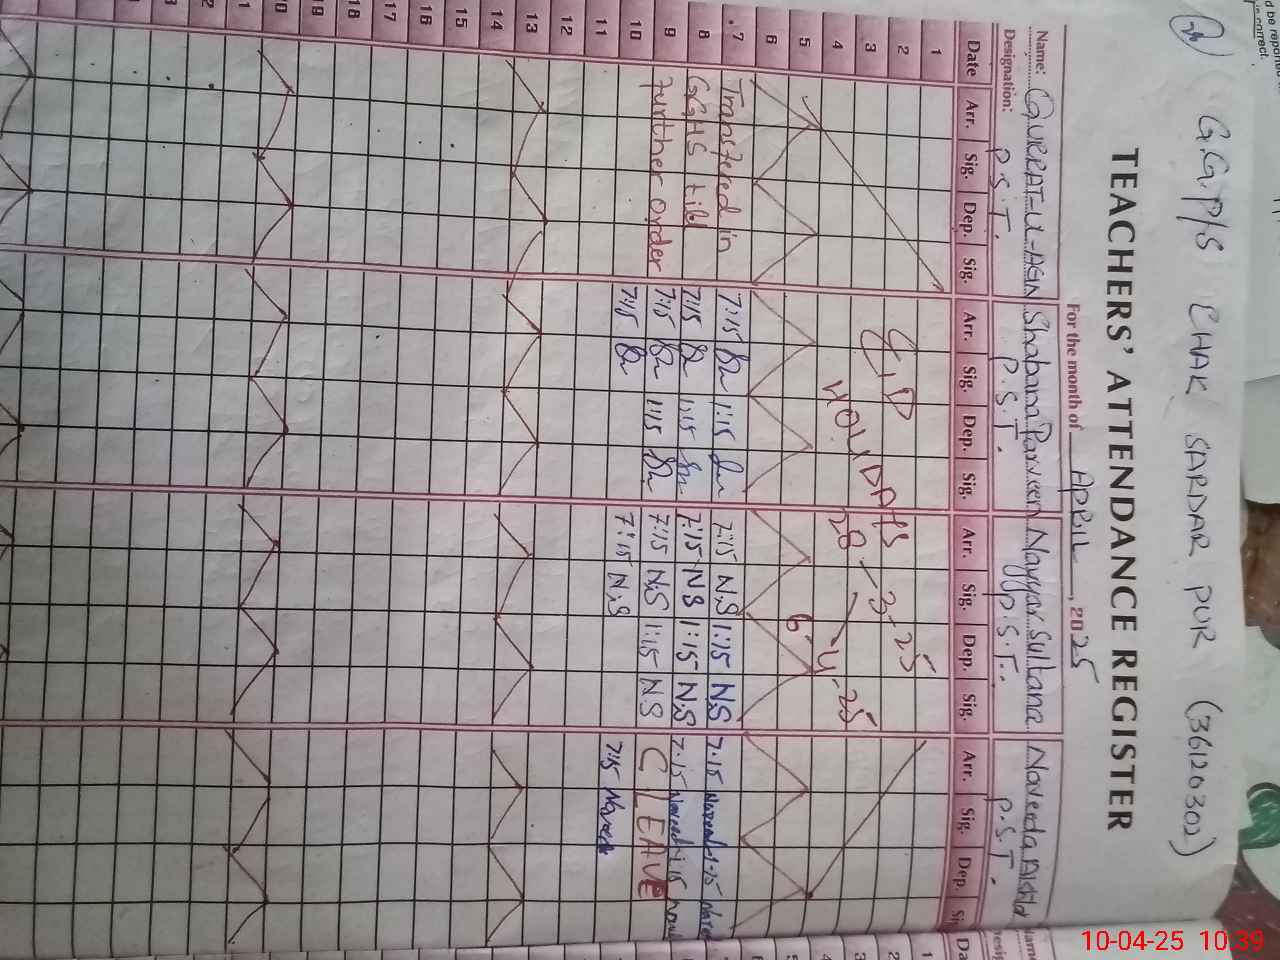 d be report
in correct.
G.G.P/S CHAK SARDAR PUR (36120302)
TEACHERS' ATTENDANCE REGISTER
For the month of APRIL, 2025
Name: QURRAT-U-AGIN Shabana Parveen Nayyar Sultana Naveeda Akhtar
Designation: P.S.T. P.S.T. P.S.T. P.S.T.
Date Arr. Sig. Dep. Sig. Arr. Sig. Dep. Sig. Arr. Sig. Dep. Sig. Arr. Sig. Dep.
1
2
3 EID
4 HOLIDAYS 28-3-25
5 6-4-25
6
7 Transfered in 7:15 1:15 7:15 N.S 1:15 N.S 7.15
8 GGHS till 7:15 1:15 7:15 N.S 1:15 N.S 7.15 1:15
9 further order 7:15 1:15 7:15 N.S 1:15 N.S C/LEAVE
10 7:15 7:15 N.S 7:15
11
12
13
14
15
16
17
18
19
20
10-04-25 10:39